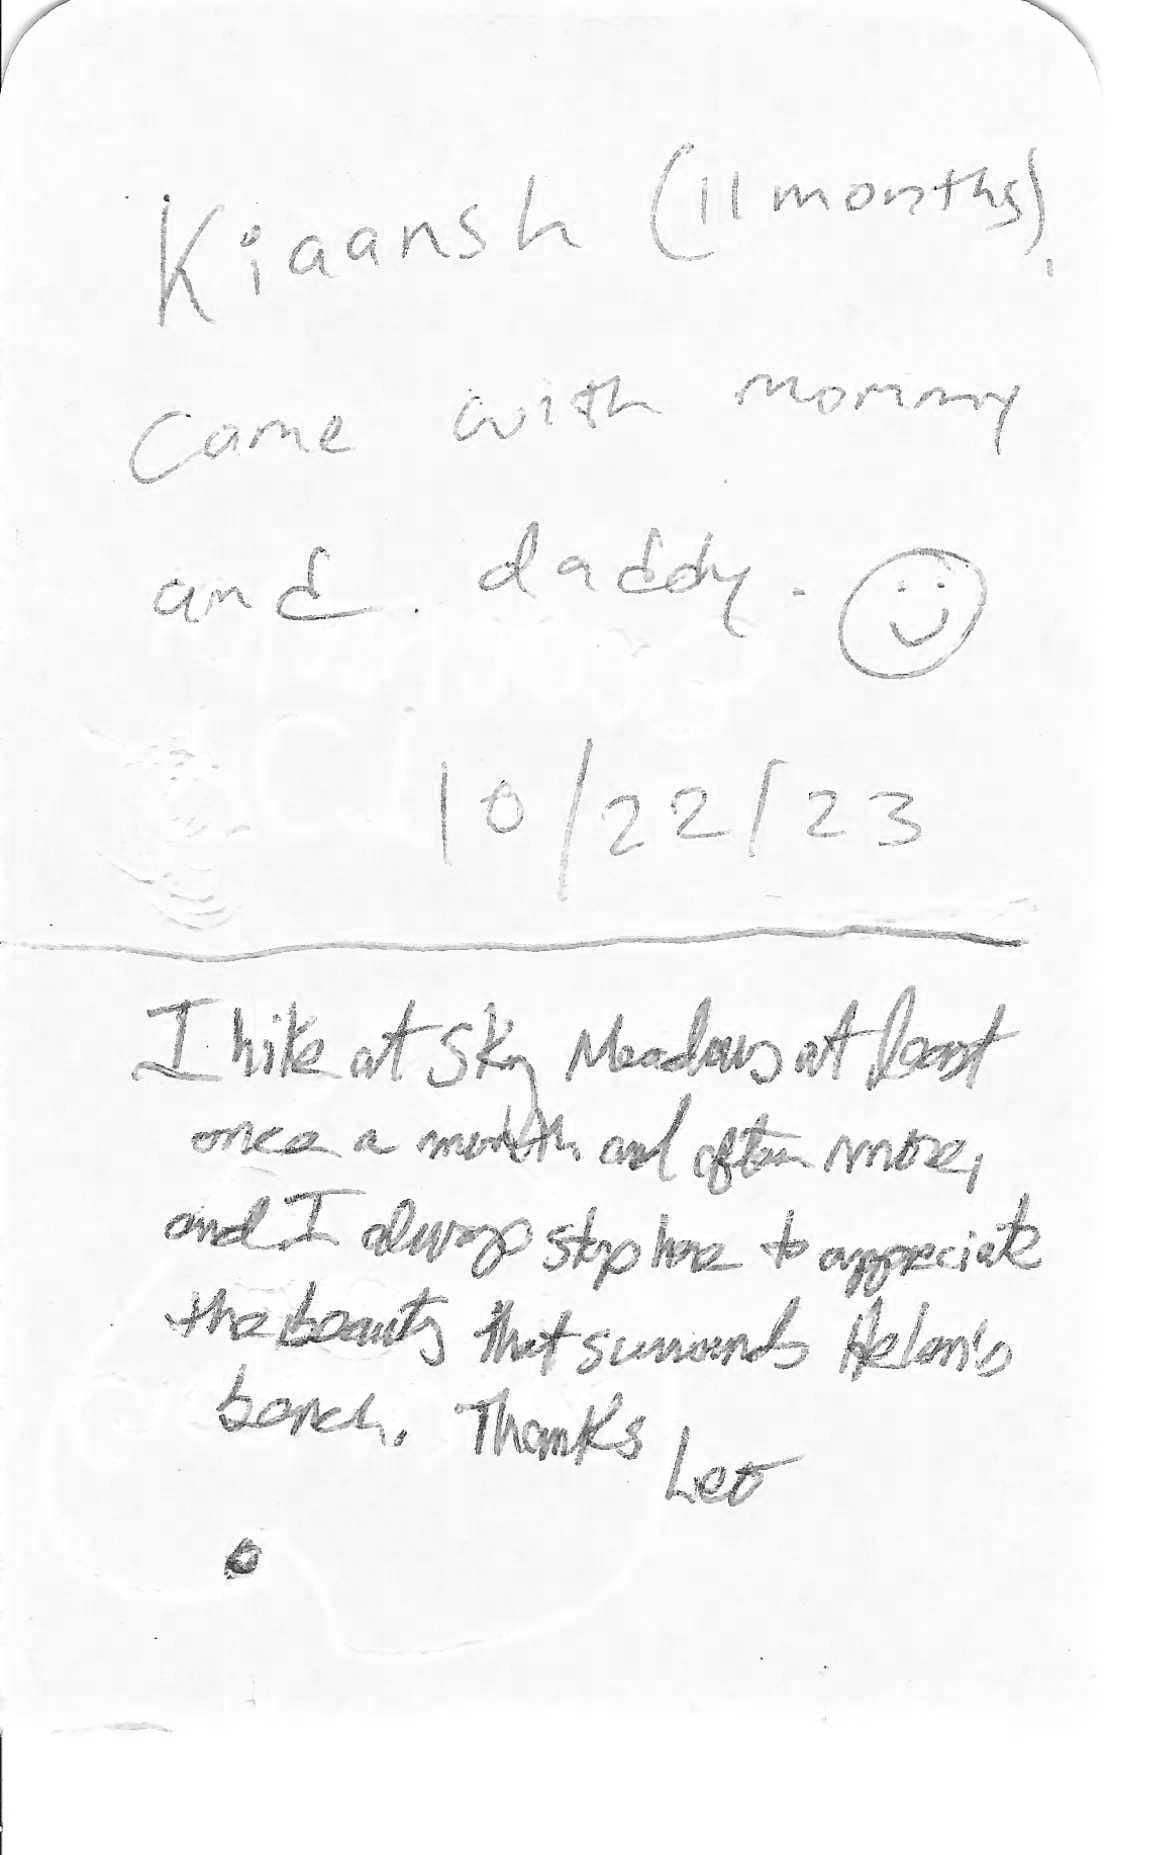 Kiaansh (11 months),
came with mommy
and daddy.
10/22/23
I hike at Sky Meadows at least
once a month and often more,
and I always stop here to appreciate
the beauty that surrounds Helen's
bench. Thanks
Leo